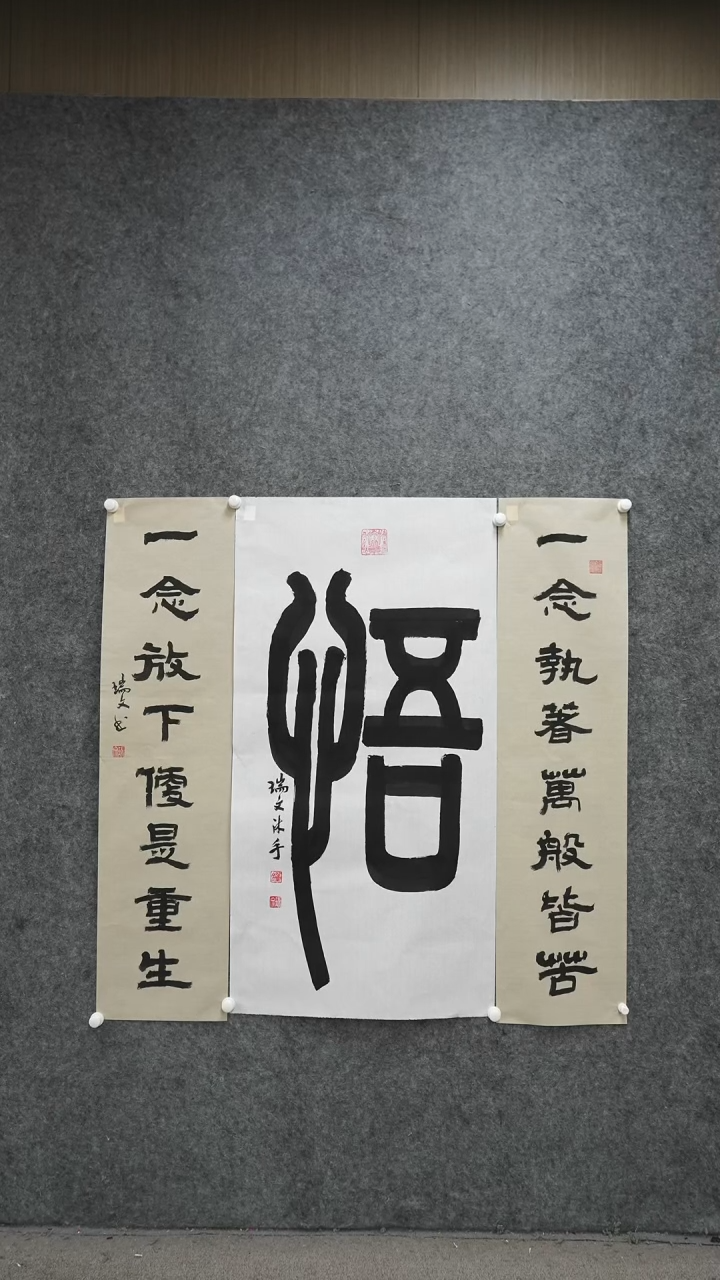 一念執著萬般皆苦
悟
瑞文沐手
一念放下便是重生
瑞文书